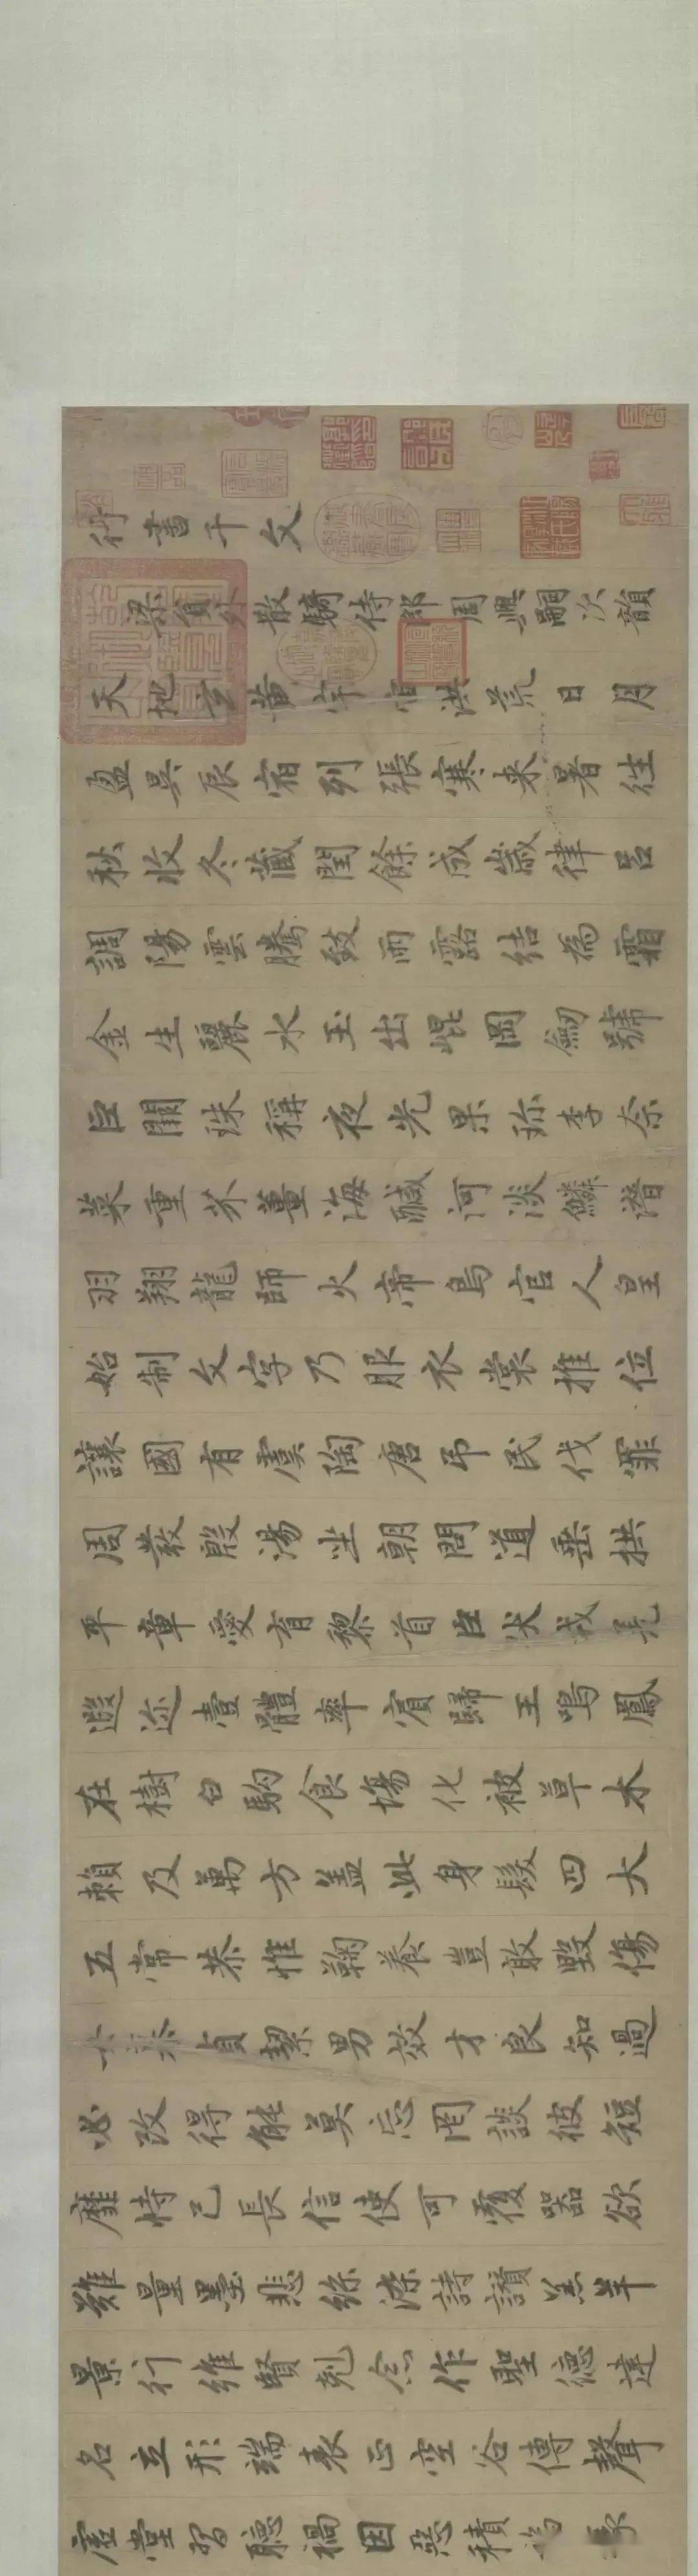 行書千文
梁員外散騎侍郎周興嗣次韻
天地玄黃宇宙洪荒日月
盈昃辰宿列張寒来暑往
秋收冬藏閏餘成歲律呂
調陽雲騰致雨露結為霜
金生麗水玉出崐岡劒號
巨闕珠稱夜光果珎李柰
菜重芥薑海醎河淡鱗潛
羽翔龍師火帝鳥官人皇
始制文字乃服衣裳推位
讓國有虞陶唐吊民伐罪
周發殷湯坐朝問道垂拱
平章愛育黎首臣伏戎羌
遐迩壹體率賓歸王鳴鳳
在樹白駒食場化被草木
賴及萬方盖此身髮四大
五常恭惟鞠養豈敢毀傷
女慕貞絜男效才良知過
必改得能莫忘罔談彼短
靡恃己長信使可覆器欲
難量墨悲絲染詩讚羔羊
景行維賢剋念作聖德建
名立形端表正空谷傳聲
虛堂習聽禍因惡積